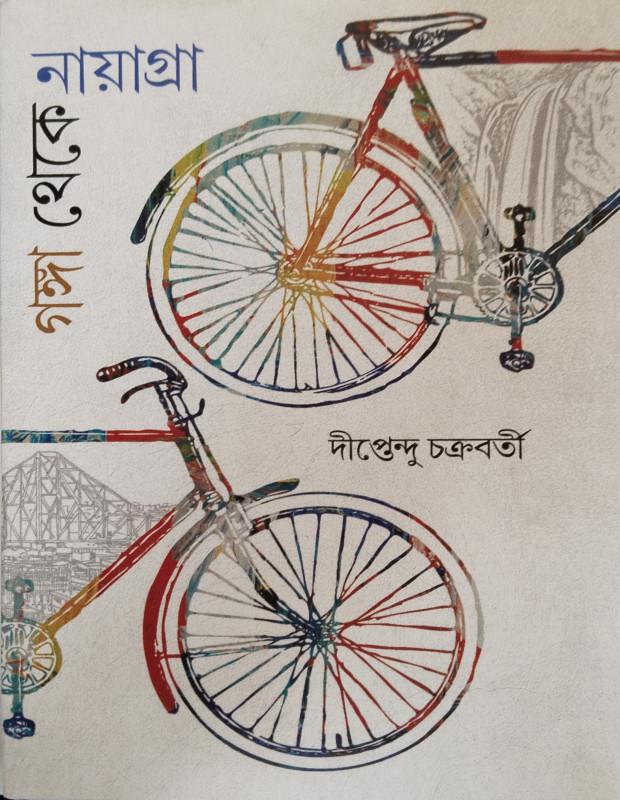 গঙ্গা থেকে
নায়াগ্রা
দীপ্তেন্দু চক্রবর্তী